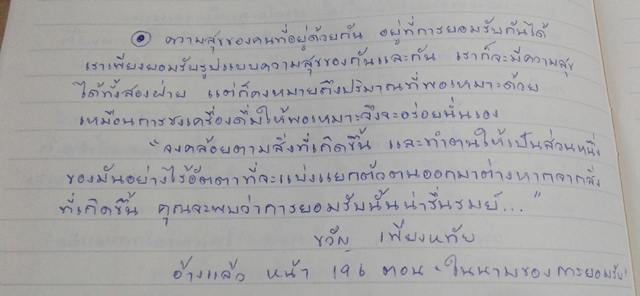 ๏ ความสุขของคนที่อยู่ด้วยกัน อยู่ที่การยอมรับกันได้
เราเพียงยอมรับรูปแบบความสุขของกันและกัน เราก็จะมีความสุข
ได้ทั้งสองฝ่าย แต่ก็คงหมายถึงปริมาณที่พอเหมาะด้วย
เหมือนการชงเครื่องดื่มให้พอเหมาะจึงจะอร่อยนั่นเอง
"จงคล้อยตามสิ่งที่เกิดขึ้น และทำตนให้เป็นส่วนหนึ่ง
ของมันอย่างไร้อัตตาที่จะแบ่งแยกตัวตนออกมาต่างหากจากสิ่ง
ที่เกิดขึ้น คุณจะพบว่าการยอมรับนั้นน่ารื่นรมย์..."
ขวัญ เพียงหทัย
อ้างแล้ว หน้า 196 ตอน "ในนามของการยอมรับ"